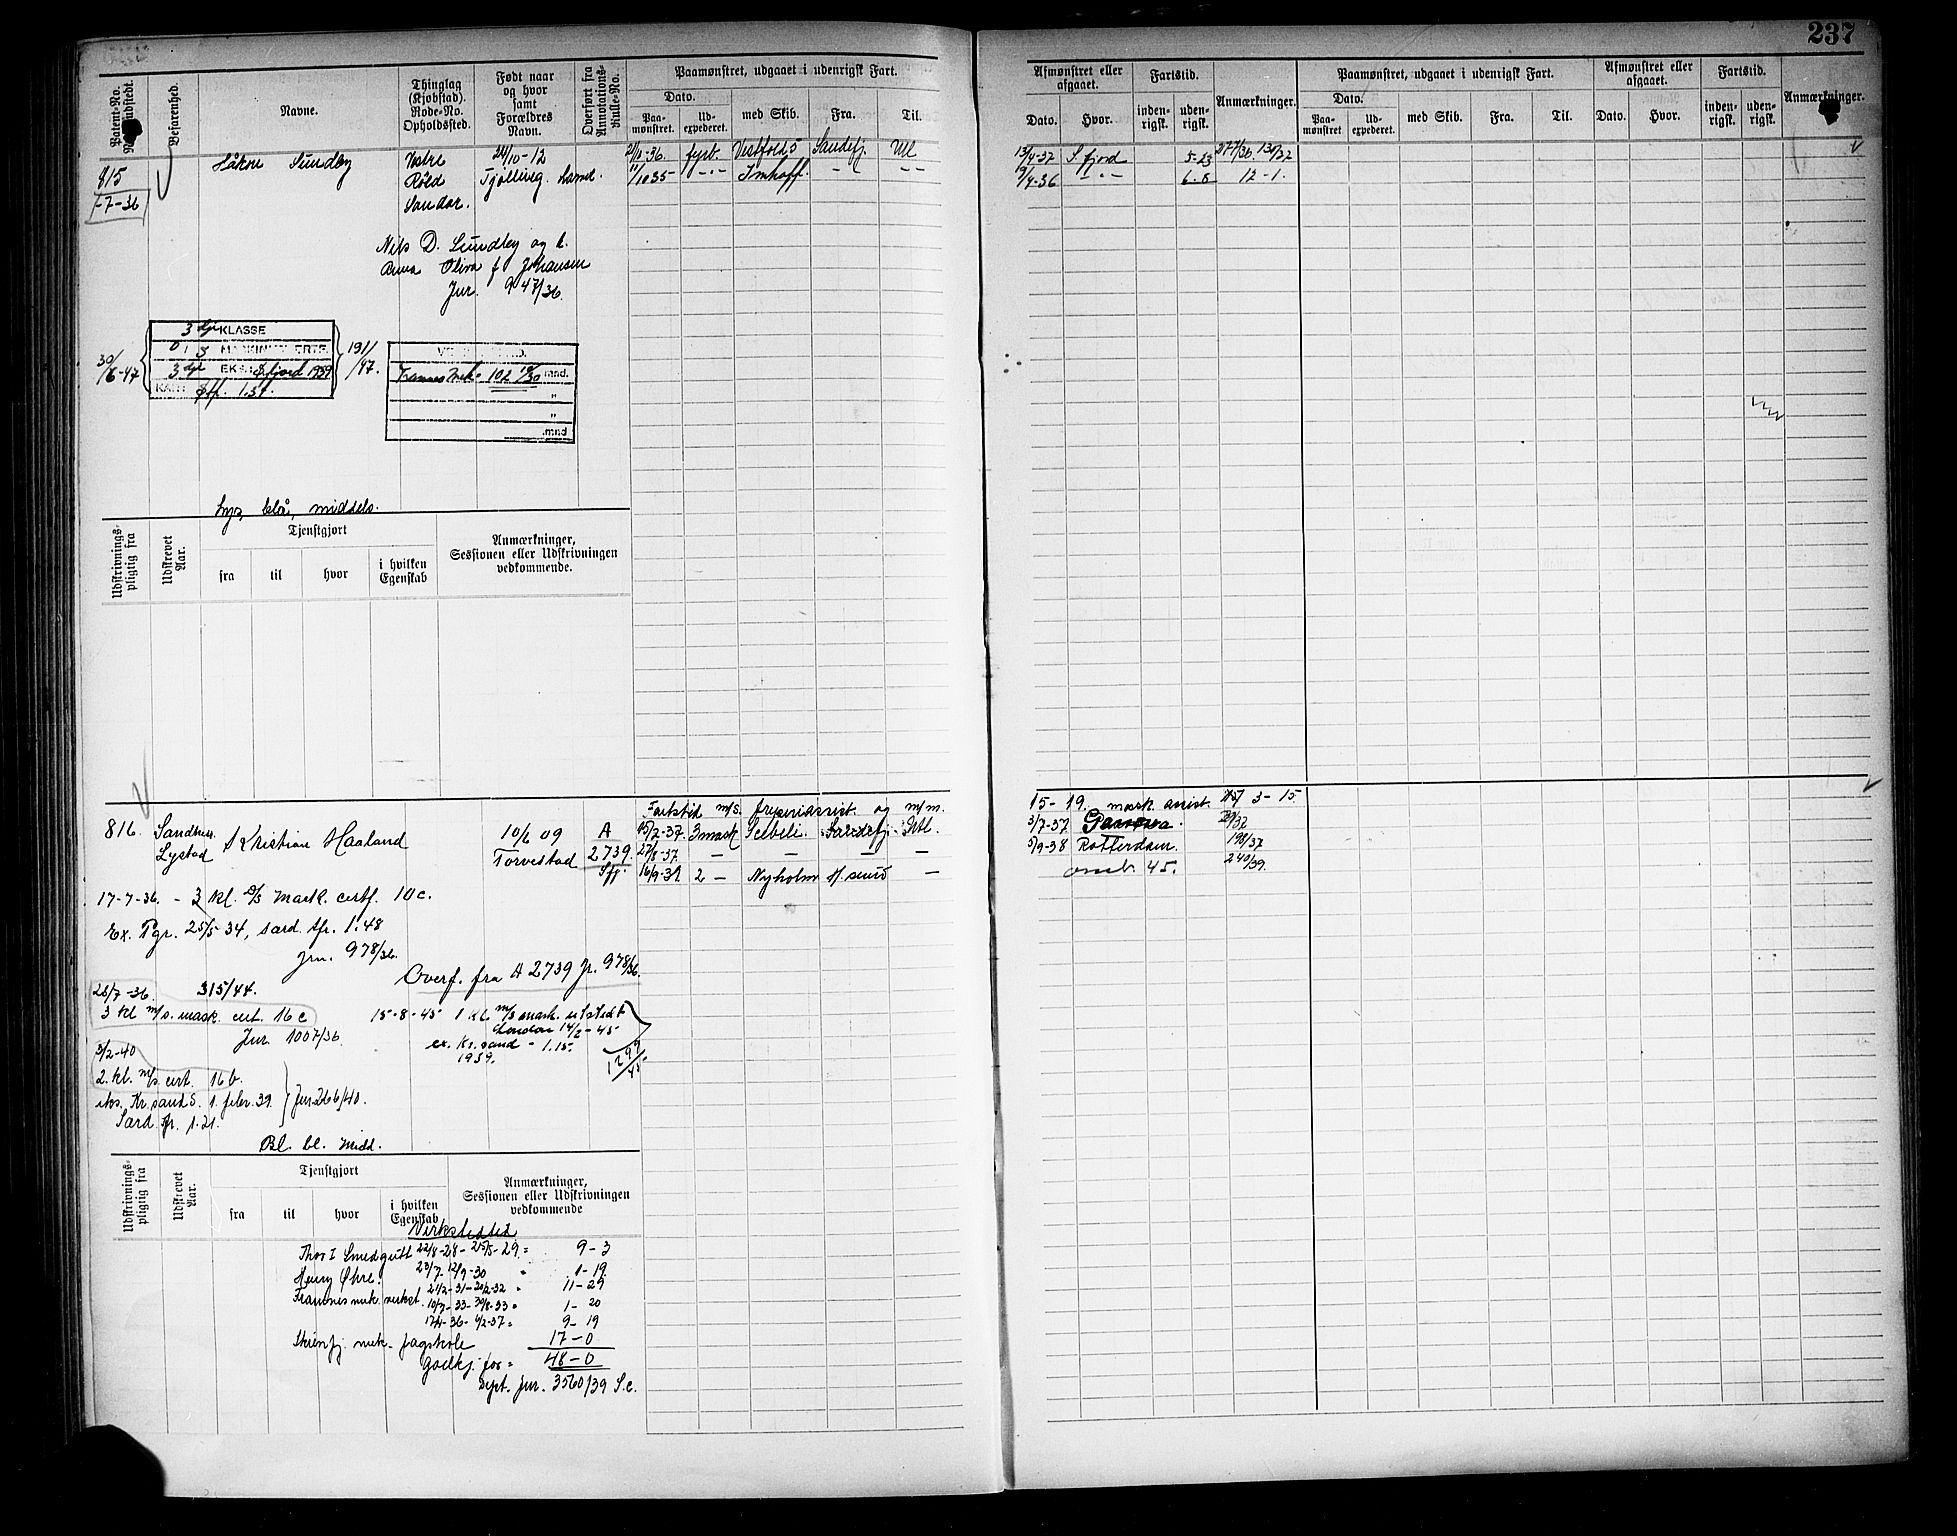 237
Patent-No.
Befarenhed.
Navne.
Thinglag
(Kjøbstad).
Rode-No.
Opholdssted.
Født naar
og hvor
samt
Forældres
Navn.
Overført fra
Annotations-
Rulle-No.
Paamønstret, udgaaet i udenrigsk Fart.
Dato.
Paa-
mønstret.
Ud-
expederet.
med Skib.
Fra.
Til.
Afmønstret eller
afgaaet.
Dato.
Hvor.
Fartstid.
inden-
rigsk.
uden-
rigsk.
Anmærkninger.
Paamønstret, udgaaet i udenrigsk Fart.
Dato.
Paa-
mønstret
Ud-
expederet.
med Skib.
Fra.
Til.
Afmønstret eller
afgaaet.
Dato.
Hvor.
Fartstid.
inden-
rigsk.
uden-
rigsk.
Anmærkninger.
815
-7-36
Håkon Sundby
Vestre
Røed
Sandar.
24/10-12
Tjøllivg. Land.
21/10-36. fyrb. Vestfold 5 Sandefj. Utl
11/10 35 -"- Imhoff. -"- -"-
13/4-37 S.fjord 5-23 277/36. 130/37
19/4-36 -"- 6-8 12-1.
Nils D. Sundby og h.
Anna Oliva f. Johansen
Jur. 947/36.
30/6-47
3dje KLASSE
3dje EKS. S.fjord 1939
1.31.
191/47.
Framnes mek. 102 10/30 mnd.
"
"
mnd
Lys, blå, middels.
Udskrivnings-
pligtig fra
Udskrevet
Aar.
Tjenstgjort
fra
til
hvor
i hvilken
Egenskab
Anmærkninger,
Sessionen eller Udskrivningen
vedkommende.
816.
Kristian Haaland
10/6 09
Torvestad
A
2739.
Fartstid m/s. og m/m.
15/2-37 3 mask Sandefj. Utl.
27/8-37. — — — —
16/9-39 2 — Nyholm H.sund —
15-19. mask. assist. 3-15.
3/7-37
5/9-38 Rotterdam. 198/37
omb. 45. 240/39.
17-7-36. - 3 kl. D/S mask. certf. 10c.
Ex. Pgr. 25/5 34, sard. tfr. 1.48
Jrn. 978/36.
Overf. fra A 2739 Jr. 978/36.
28/7-36. 315/44.
3 kl m/s. mask. cert. 16c
Jur. 1007/36.
15-8-45 1 kl. m/s mask. utstedt
London 14/2-45
ex. Kr.sand - 1.15.
1939.
1299/45
3/2-40
2. kl. m/s. cert. 16b.
eks. Kr.sand S. 1. febr. 39. Jur. 266/40.
Sard. fr. 1.21.
Bl. bl. midd.
Udskrivnings-
pligtig fra
Udskrevet
Aar.
Tjenstgjort
fra
til
hvor
i hvilken
Egenskab
Anmærkninger,
Sessionen eller Udskrivningen
vedkommende
Verkstedtid
Thor I Smedgutt 22/8-28- 25/5-29. = 9-3
Henry Øhre. 23/7- 12/9-30 " 1-19
21/2-31-20/2-32 " 11-29
Framnes mek. verkst. 10/7-33-30/8-33 " 1-20
17/4-36- 6/2-37 " 9-19
Skiensfj. mek. fagskole 17-0
Godkj. for = 48-0
Dept. Jur. 3560/39 S.c.